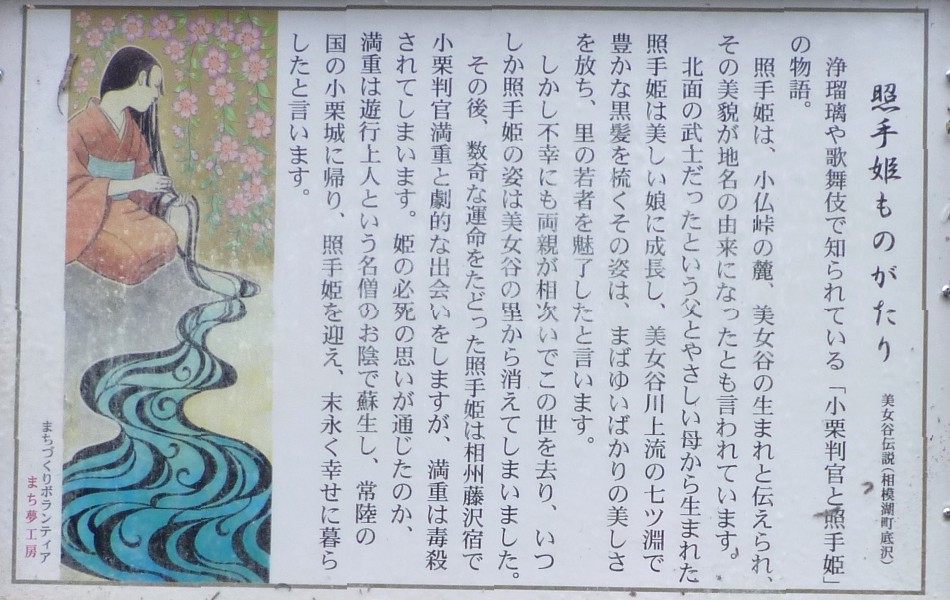 照手姫ものがたり
美女谷伝説(相模湖町底沢)
浄瑠璃や歌舞伎で知られている「小栗判官と照手姫」
の物語。
照手姫は、小仏峠の麓、美女谷の生まれと伝えられ、
その美貌が地名の由来になったとも言われています。
北面の武士だったという父とやさしい母から生まれた
照手姫は美しい娘に成長し、美女谷川上流の七ツ淵で
豊かな黒髪を梳くその姿は、まばゆいばかりの美しさ
を放ち、里の若者を魅了したと言います。
しかし不幸にも両親が相次いでこの世を去り、いつ
しか照手姫の姿は美女谷の里から消えてしまいました。
その後、数奇な運命をたどった照手姫は相州藤沢宿で
小栗判官満重と劇的な出会いをしますが、満重は毒殺
されてしまいます。姫の必死の思いが通じたのか、
満重は遊行上人という名僧のお陰で蘇生し、常陸の
国の小栗城に帰り、照手姫を迎え、末永く幸せに暮ら
したと言います。
まちづくりボランティア
まち夢工房